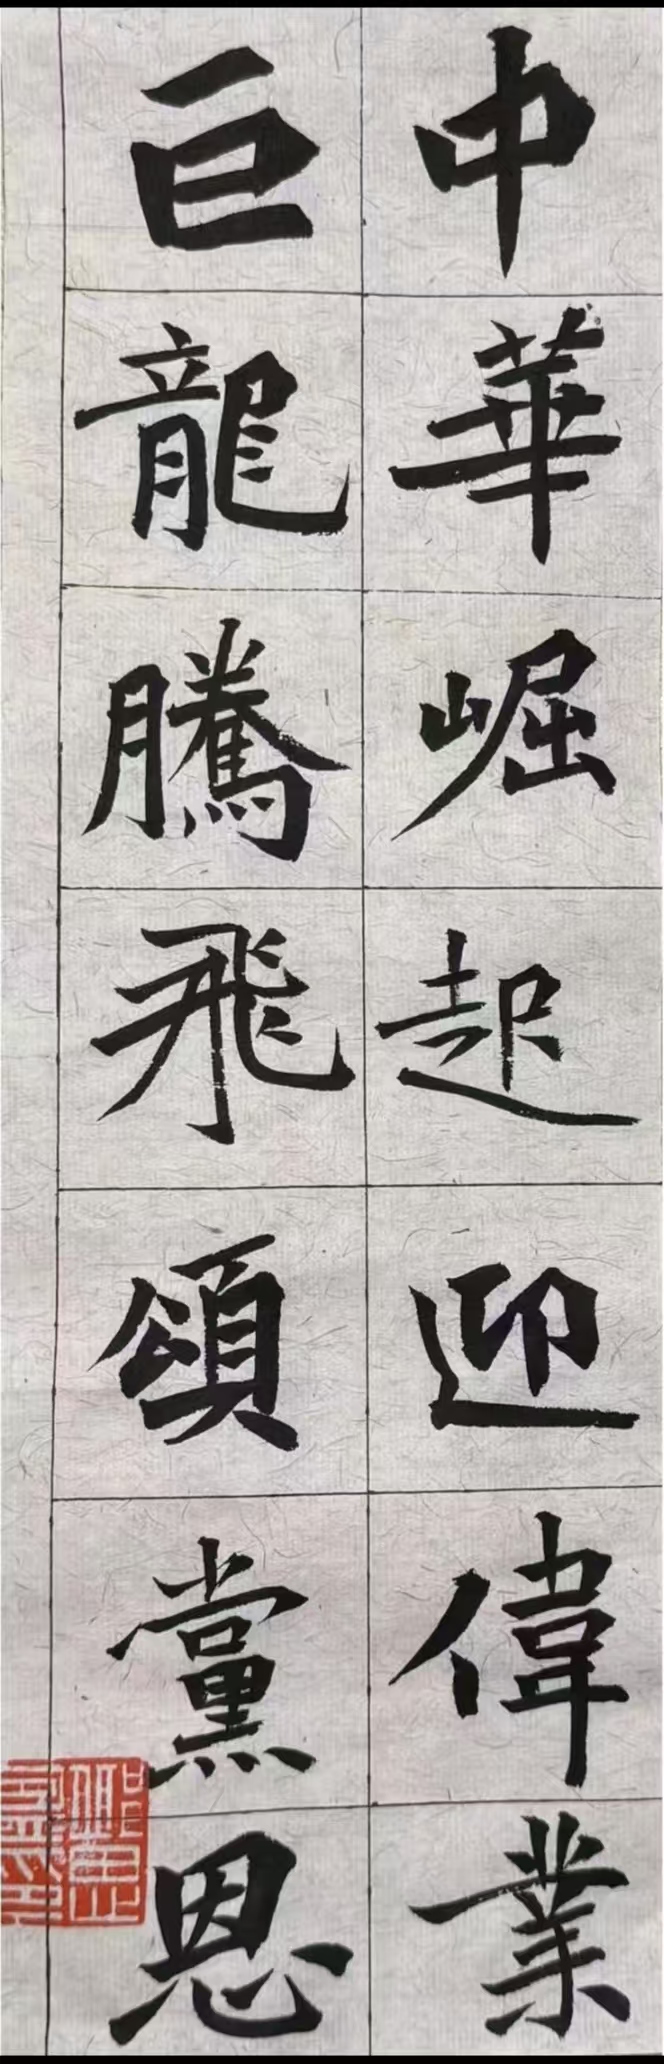 中華崛起迎偉業
巨龍騰飛頌黨恩